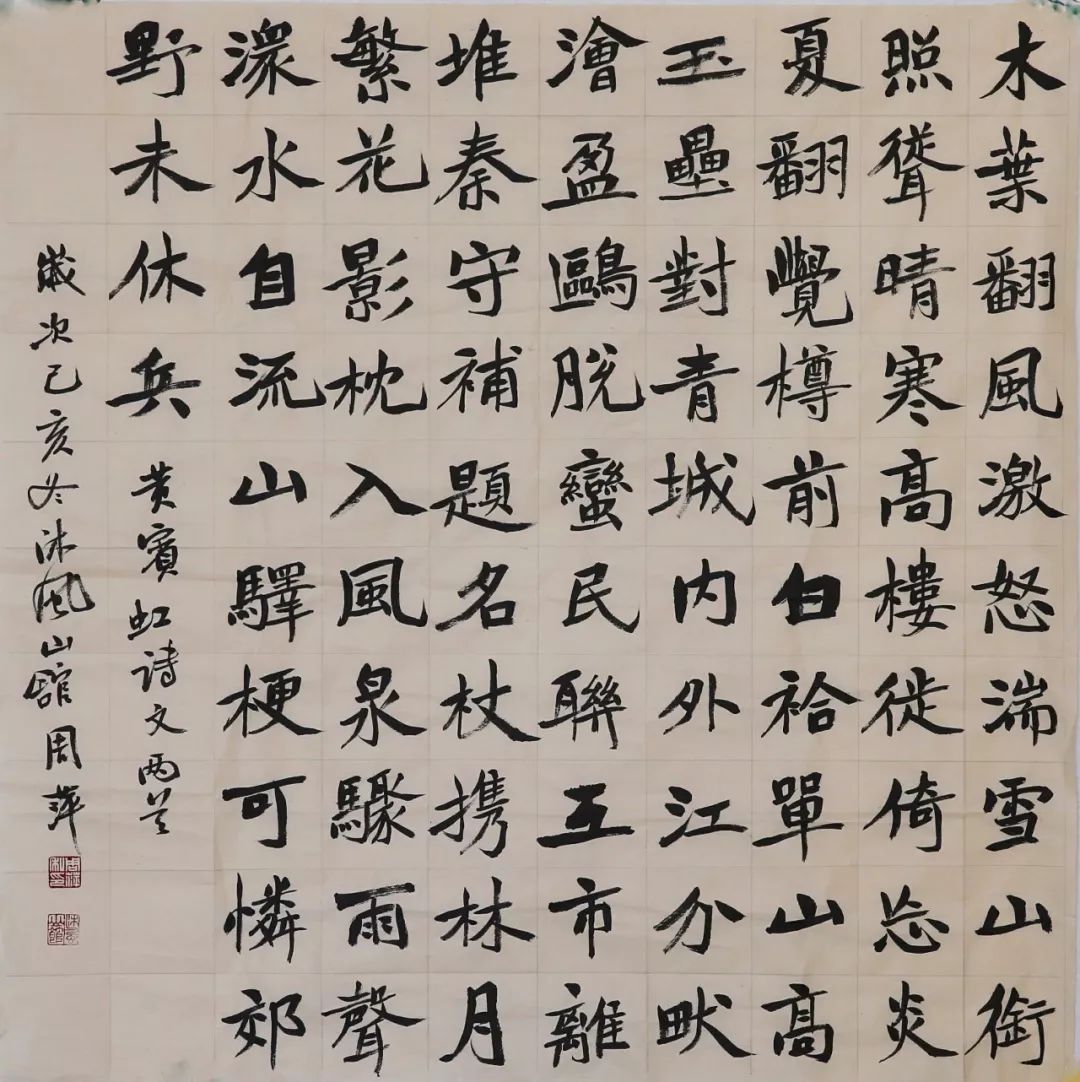 木葉翻風激怒湍雪山銜
照聳晴寒高樓徙倚忘炎
夏翻覺樽前白袷單山高
玉壘對青城內外江分畎
澮盈鷗脫蠻民聯互市離
堆秦守補題名杖携林月
繁花影枕入風泉驟雨聲
濛水自流山驛梗可憐郊
野未休兵 黄賓虹詩文兩首
歲次己亥冬沐風山館周萍